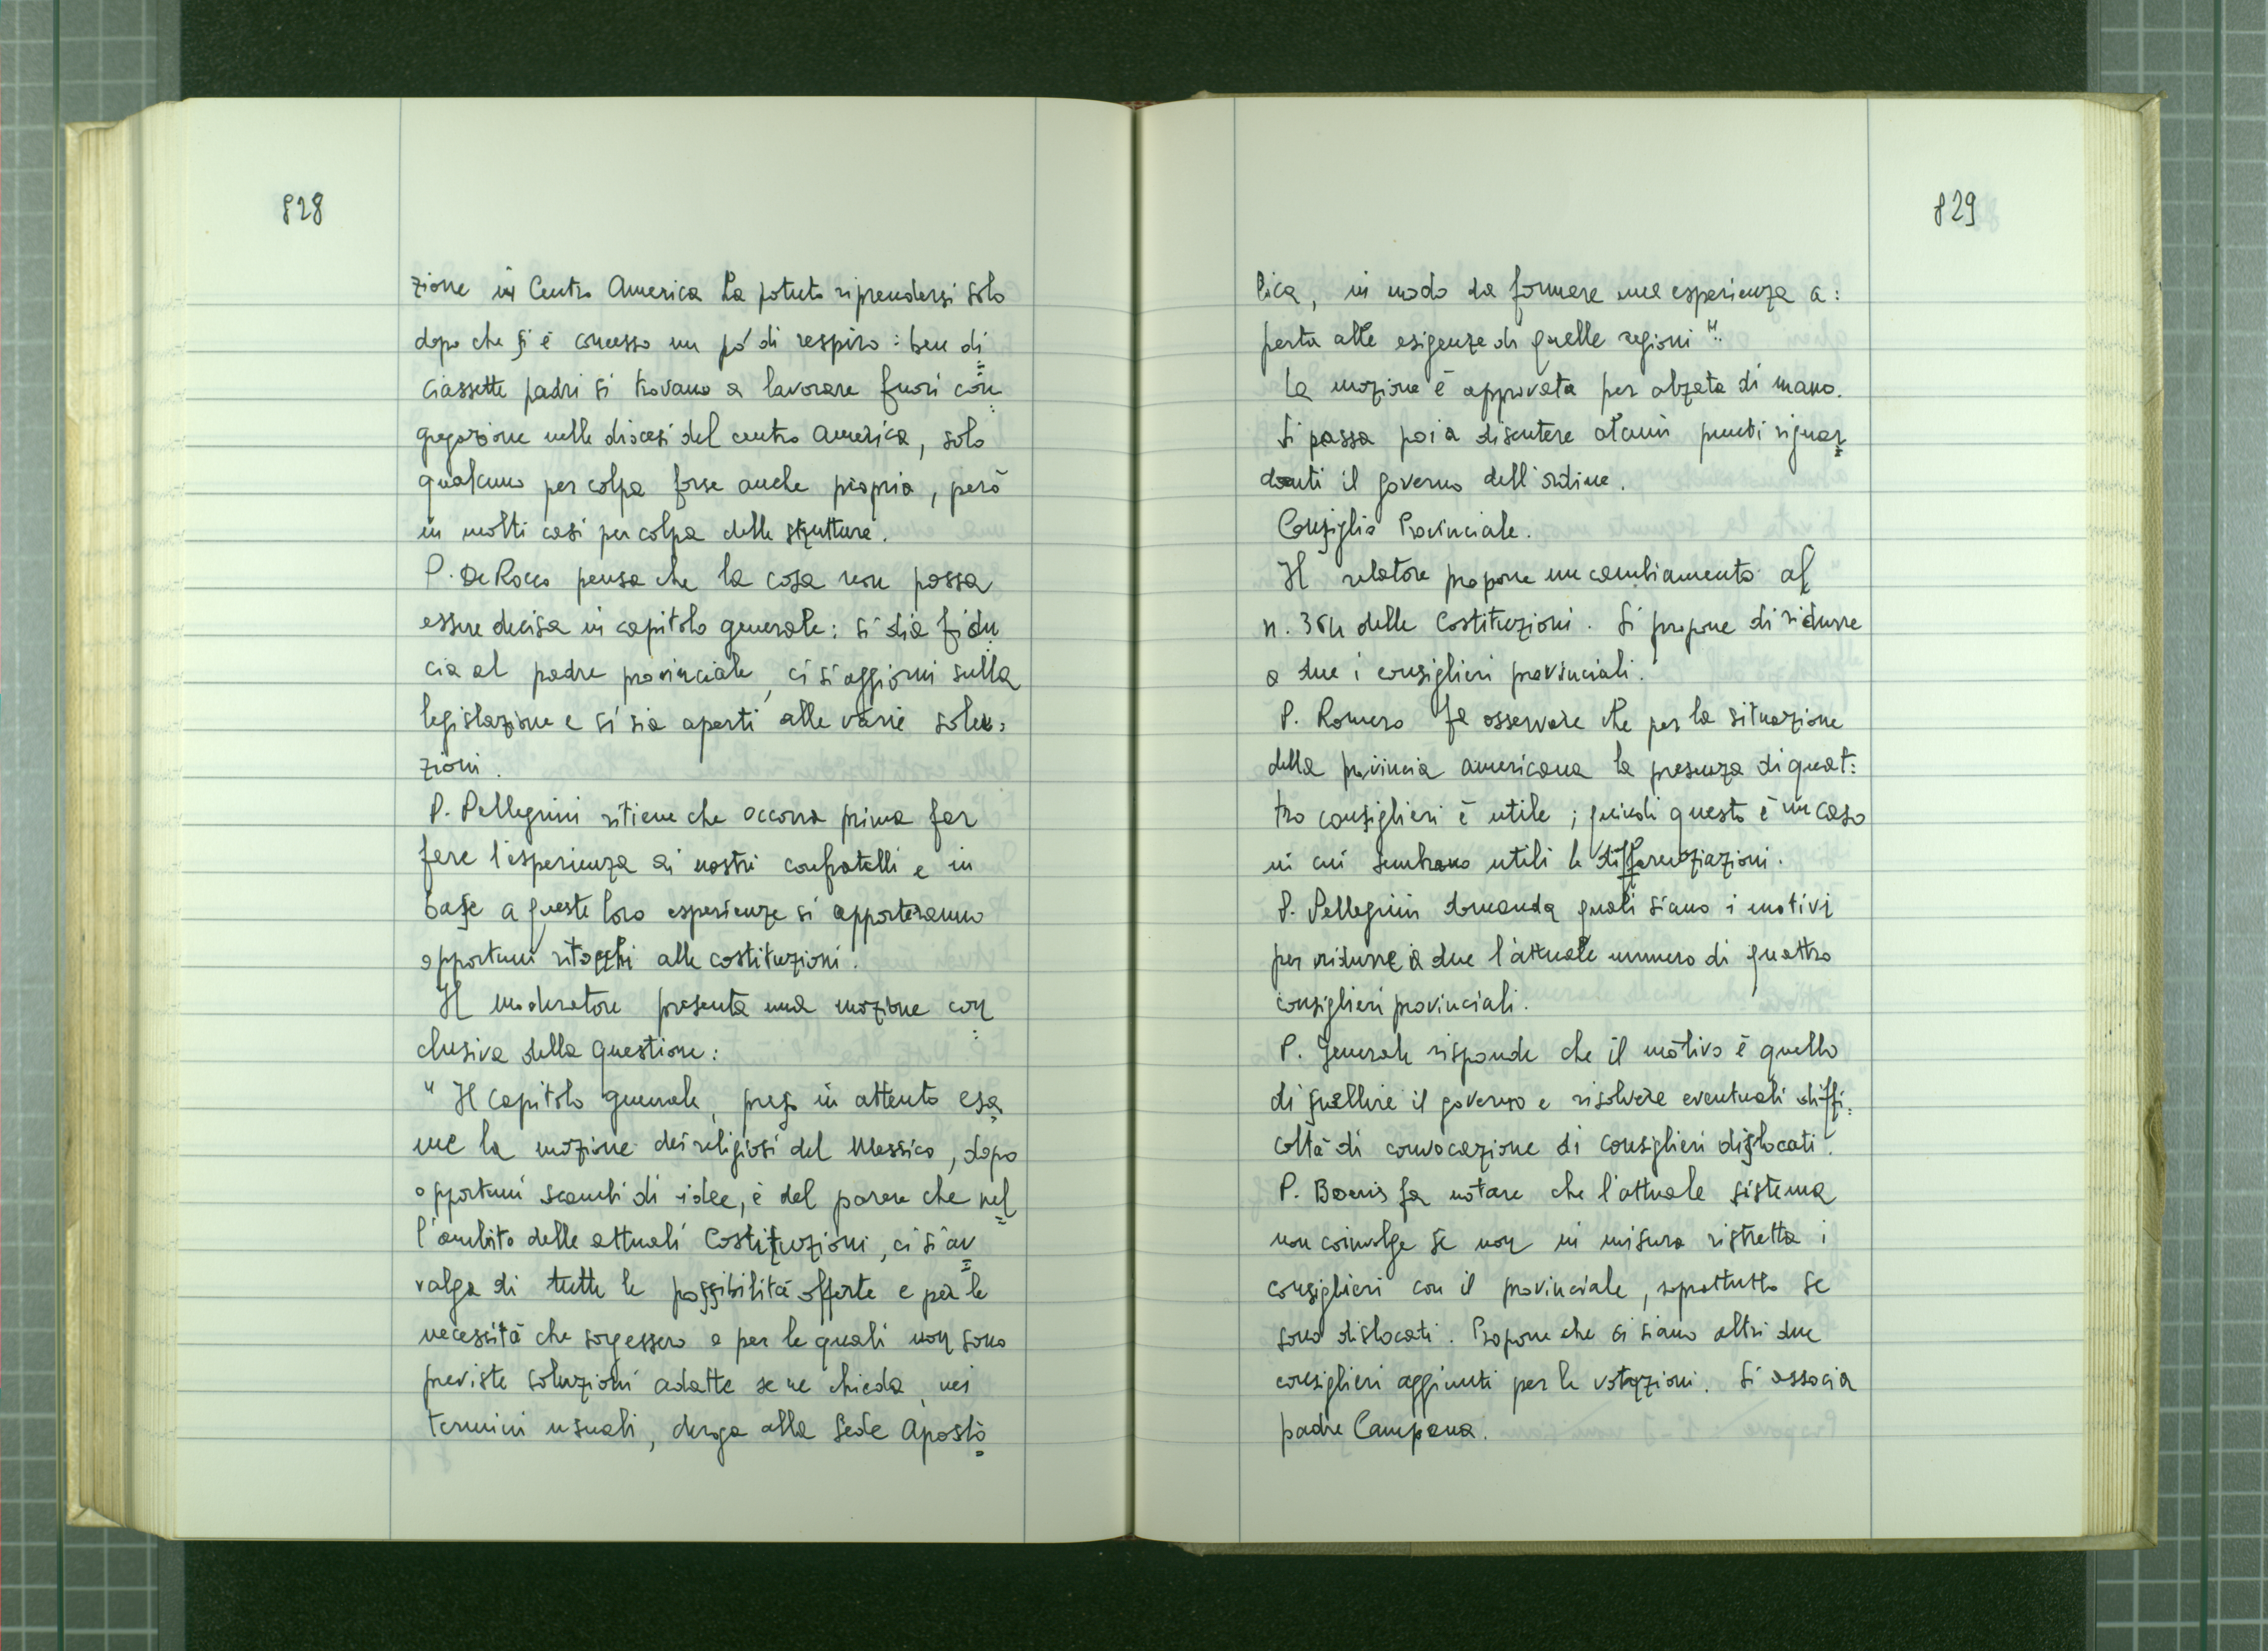 828
zione in Centro America ha potuto riprendersi solo
dopo che si è concesso un pó di respiro: ben di=
ciassette padri si trovano a lavorare fuori con=
gregazione nelle diocesi del centro America, solo
qualcuno per colpa forse anche propria, però
in molti casi per colpa delle strutture.
P. De Rocco pensa che la cosa non possa
essere decisa in capitolo generale: si dia fidu=
cia al padre provinciale, ci si aggiorni sulla
legislazione e si sia aperti alle varie solu=
zioni.
P. Pellegrini ritiene che occorra prima far
fare l'esperienza ai nostri confratelli e in
base a queste loro esperienze si apporteranno
opportuni ritocchi alle costituzioni.
Il moderatore presenta una mozione con=
clusiva della questione:
"Il capitolo generale, preso in attento esa=
me la mozione dei religiosi del Messico, dopo
opportuni scambi di idee, è del parere che nel=
l'ambito delle attuali Costituzioni, ci si av=
valga di tutte le possibilità offerte e per le
necessità che sorgessero e per le quali non sono
previste soluzioni adatte se ne chieda, nei
termini usuali, deroga alla Sede Aposto=
829
lica, in modo da formare una esperienza a=
perta alle esigenze di quelle regioni".
La mozione è approvata per alzata di mano.
Si passa poi a discutere alcuni punti riguar=
danti il governo dell'ordine.
Consiglio Provinciale.
Il relatore propone un cambiamento al
n. 364 delle Costituzioni. Si propone di ridurre
a due i consiglieri provinciali.
P. Romero fa osservare che per la situazione
della provincia americana la presenza di quat=
tro consiglieri è utile; quindi questo è un caso
in cui sembrano utili le differenziazioni.
P. Pellegrini domanda quali siano i motivi
per ridurre a due l'attuale numero di quattro
consiglieri provinciali.
P. Generale risponde che il motivo è quello
di snellire il governo e risolvere eventuali diffi=
coltà di convocazione di consiglieri dislocati.
P. Boeris fa notare che l'attuale sistema
non coinvolge se non in misura ristretta i
consiglieri con il provinciale, soprattutto se
sono dislocati. Propone che ci siano altri due
consiglieri aggiunti per le votazioni. Si associa
padre Campana.